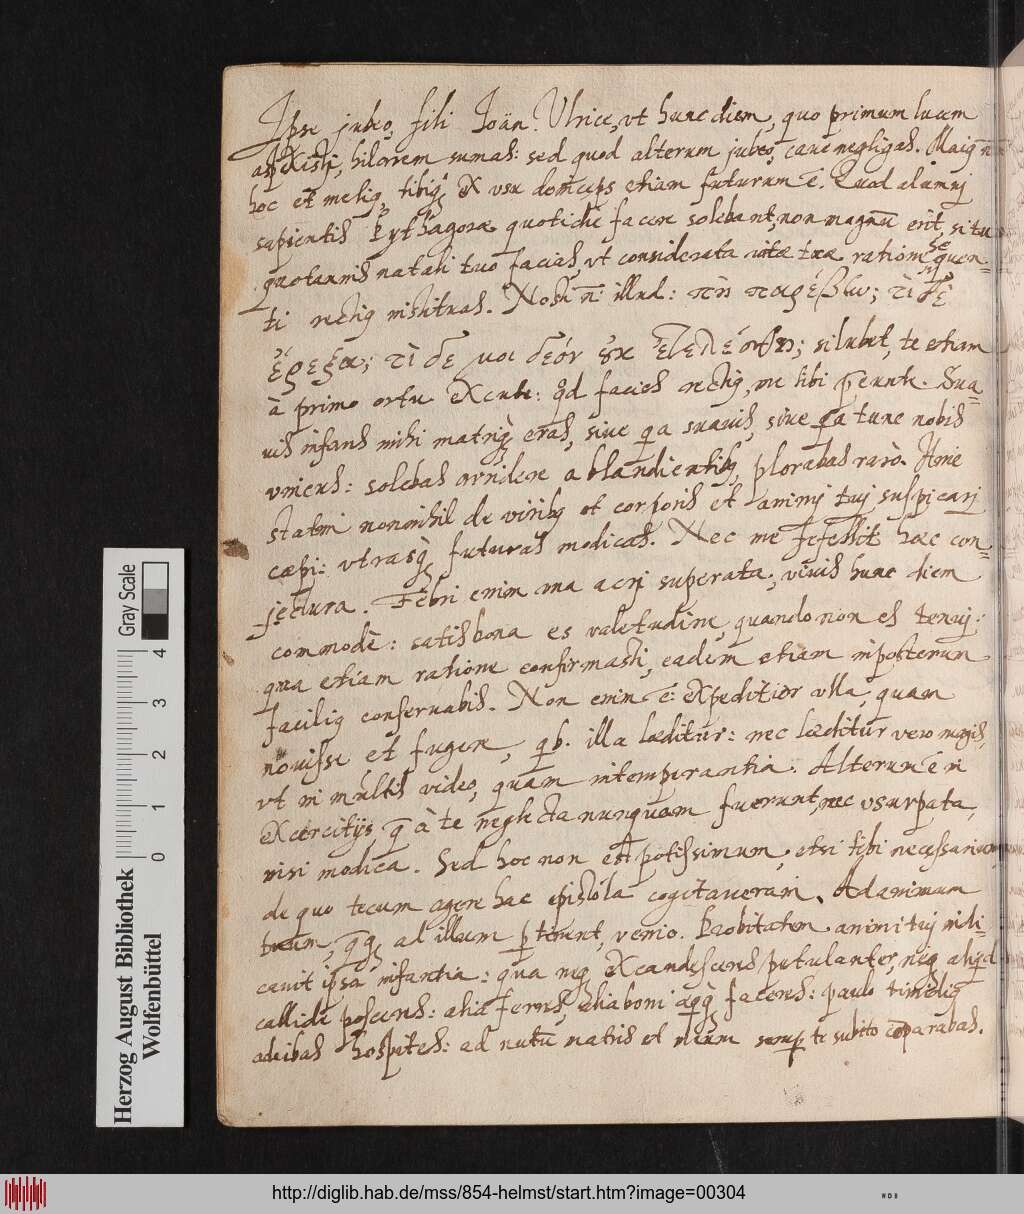 Ipse jubeo, fili Ioän. Vlrice, vt hunc diem, quo primum lucem
aspexisti, hilarem sumas: sed quod alterum jubeo, cave negligas. Maig
hoc et melig tibiq, ex vsu etiam futurum ē. Quod alumnj
sapientis Pythagoræ quotidie facere solebant, non magnū erit, si tu
quotannis natali tuo facias, vt considerata vitæ tuæ ratione sequen-
ti rectig instituas. Nosti n. illud: πῆ παρέβlω; τί δ'
ἔρεξα; τί δέ μοι δέον ȣ̓κ ἐτελέσθη; si lubet, te etiam
à primo ortu excute: qd facies rectig, ne tibi pereunte. Sua-
vis infans mihi matriq, eras, sive qa suavis, sive qa tunc nobis
vnicus: solebas arridere ablandientibg, plorabas rarò. Hinc
statim nonnihil de viribg et corporis et animj tuj suspicarj
cæpi: vtrasq, futuras modicas. Nec me fefellit hæc con-
jectura. Febri enim vna acrj superata, vivis hunc diem
commodè: satis bona es valetudine, quando non es tenuj:
qua etiam ratione confirmasti, eadem etiam inposterum
facilig conservabis. Non enim ē expeditior vlla, quam
novisse et fugere, qb. illa læditur: nec læditur vero magis,
vt in multis video, quam intemperantia. Alterum ē in
exercitijs q à te neglecta nunquam fuerunt, nec vsurpata,
nisi modica. Sed hoc non est potissimum, etsi tibi necessarium
de quo tecum agere hac epistola cogitaveram. Ad animum
tuum, qq ad illum ptinent, venio. Probitatem animi tuj indi-
cavit ipsa infantia: qua neq excandescens petulanter, neq aliqd
callide poscens: alia ferens, alia boni æqq facens: paulo timidig
adeibas hospites: ad nutū matris et meum semp te subito cōparabas.
Herzog August Bibliothek
Wolfenbüttel
Gray Scale
0 1 2 3 4
http://diglib.hab.de/mss/854-helmst/start.htm?image=00304
WDB